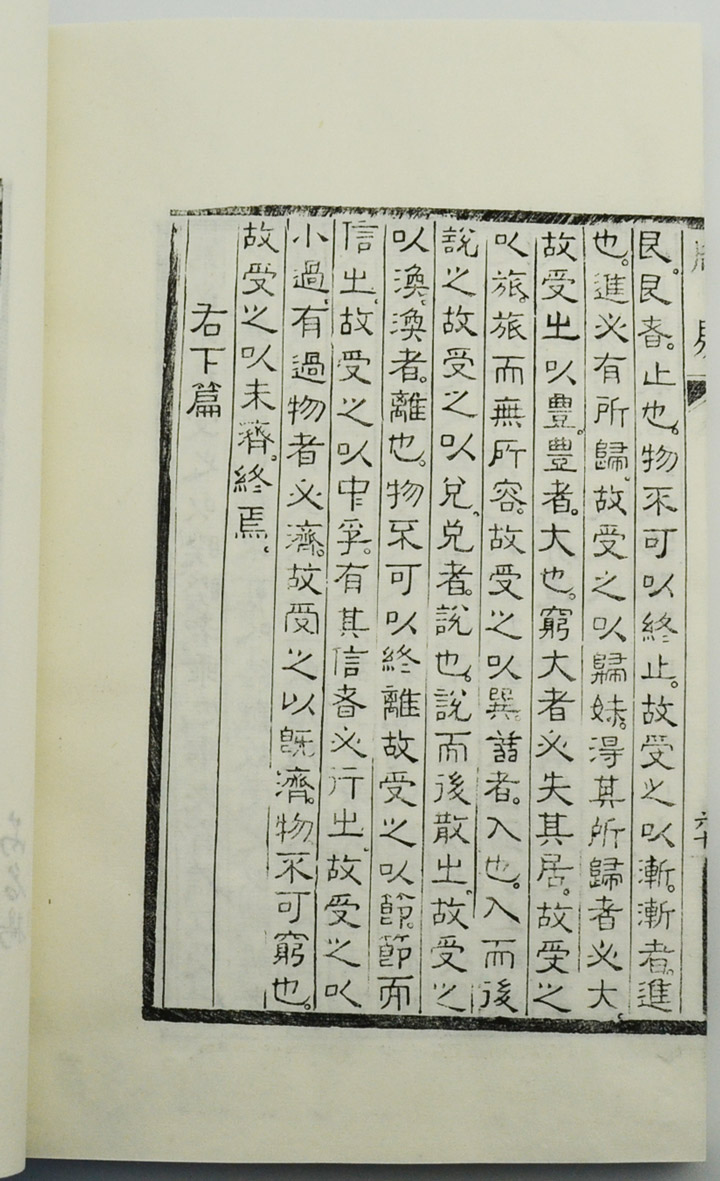 周易
六十
艮。艮者。止也。物不可以終止。故受之以漸。漸者。進
也。進必有所歸。故受之以歸妹。得其所歸者必大。
故受之以豊。豊者。大也。窮大者必失其居。故受之
以旅。旅而無所容。故受之以巽。者。入也。入而後
說之故受之以兌、兌者。說也。說而後散之。故受之
以渙。渙者。離也。物不可以終離故受之以節。節而
信之。故受之以中孚。有其信者必行之。故受之以
小過。有過物者必濟。故受之以既濟。物不可窮也。
故受之以未濟。終焉。
右下篇